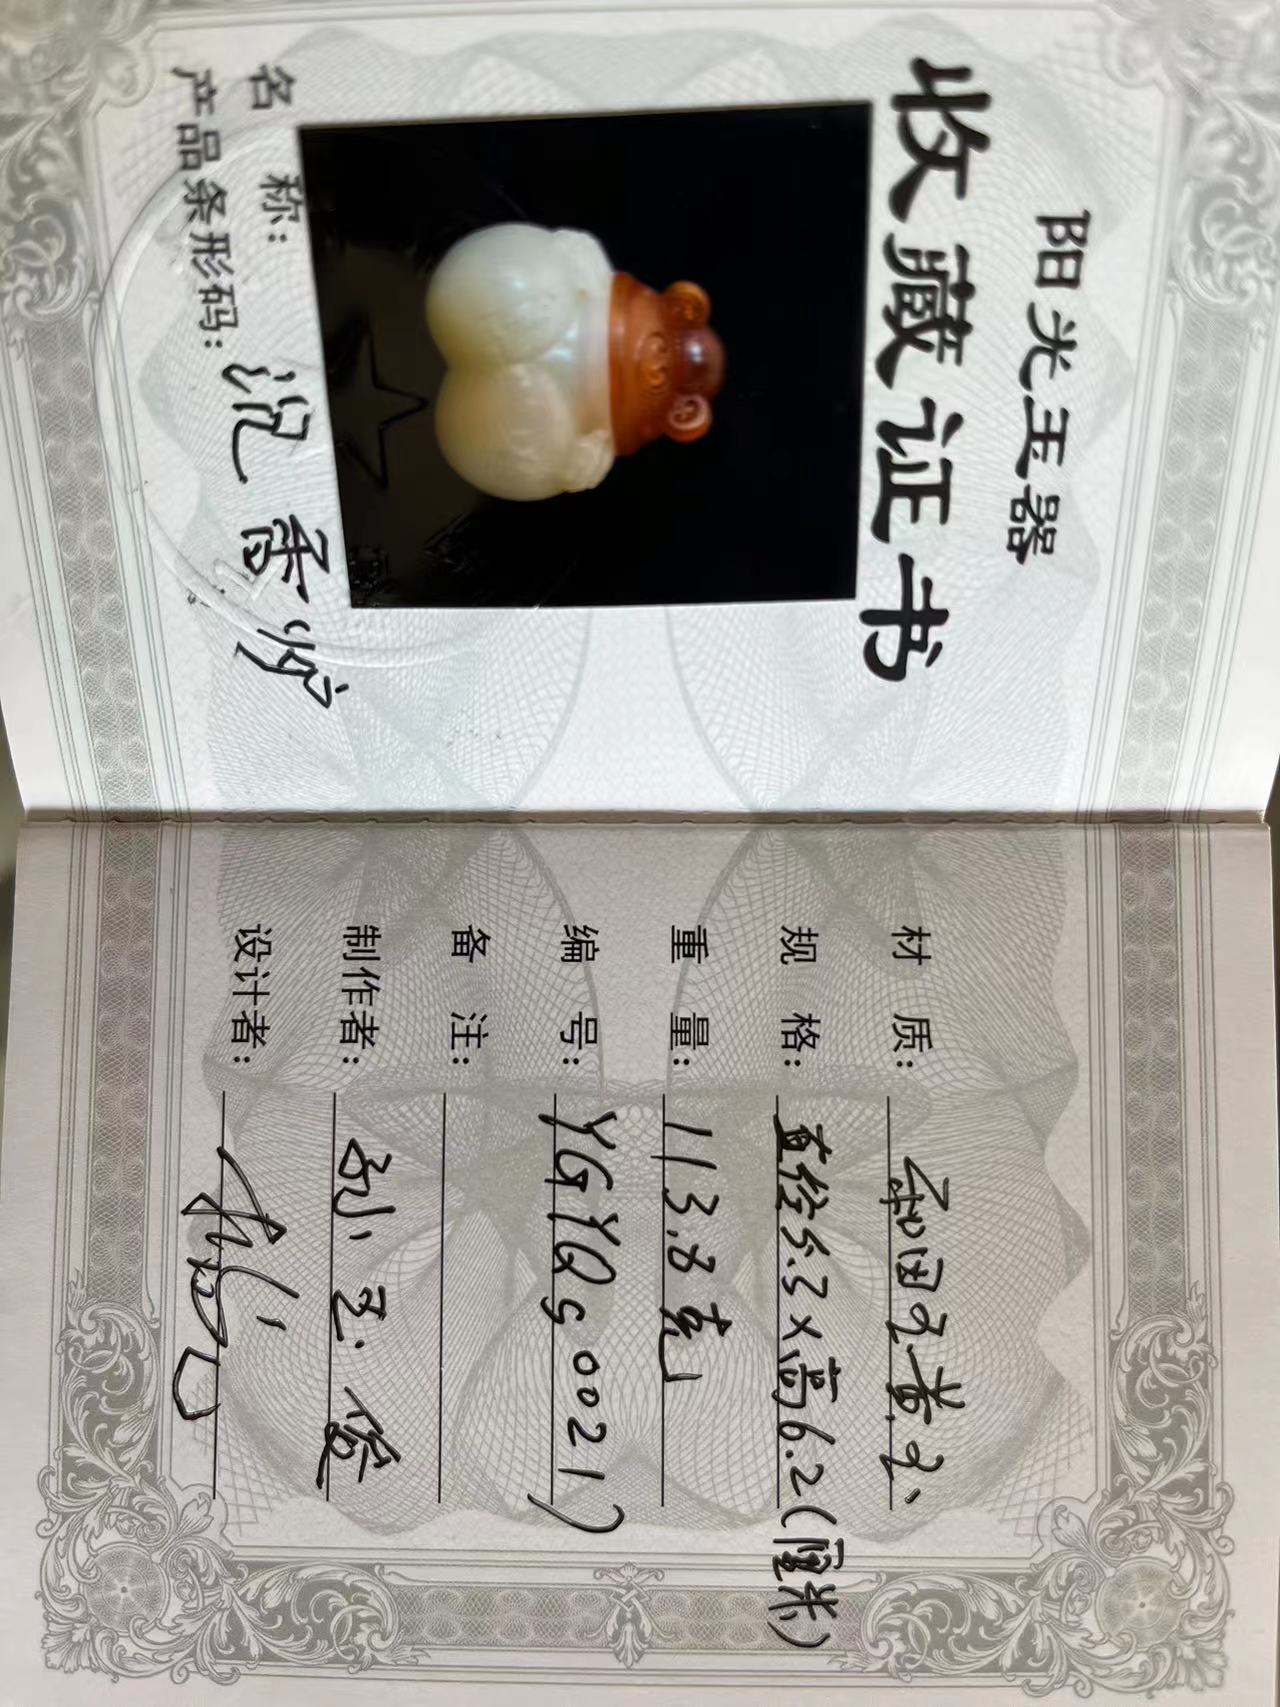 阳光玉器
收藏证书
名 称:
产品条形码: 香炉
材 质: 和田玉黄玉
规 格: 直径5.3×高6.2(厘米)
重 量: 113.8克
编 号: YGYQS0021)
备 注:
制作者: 孙玉俊
设计者: